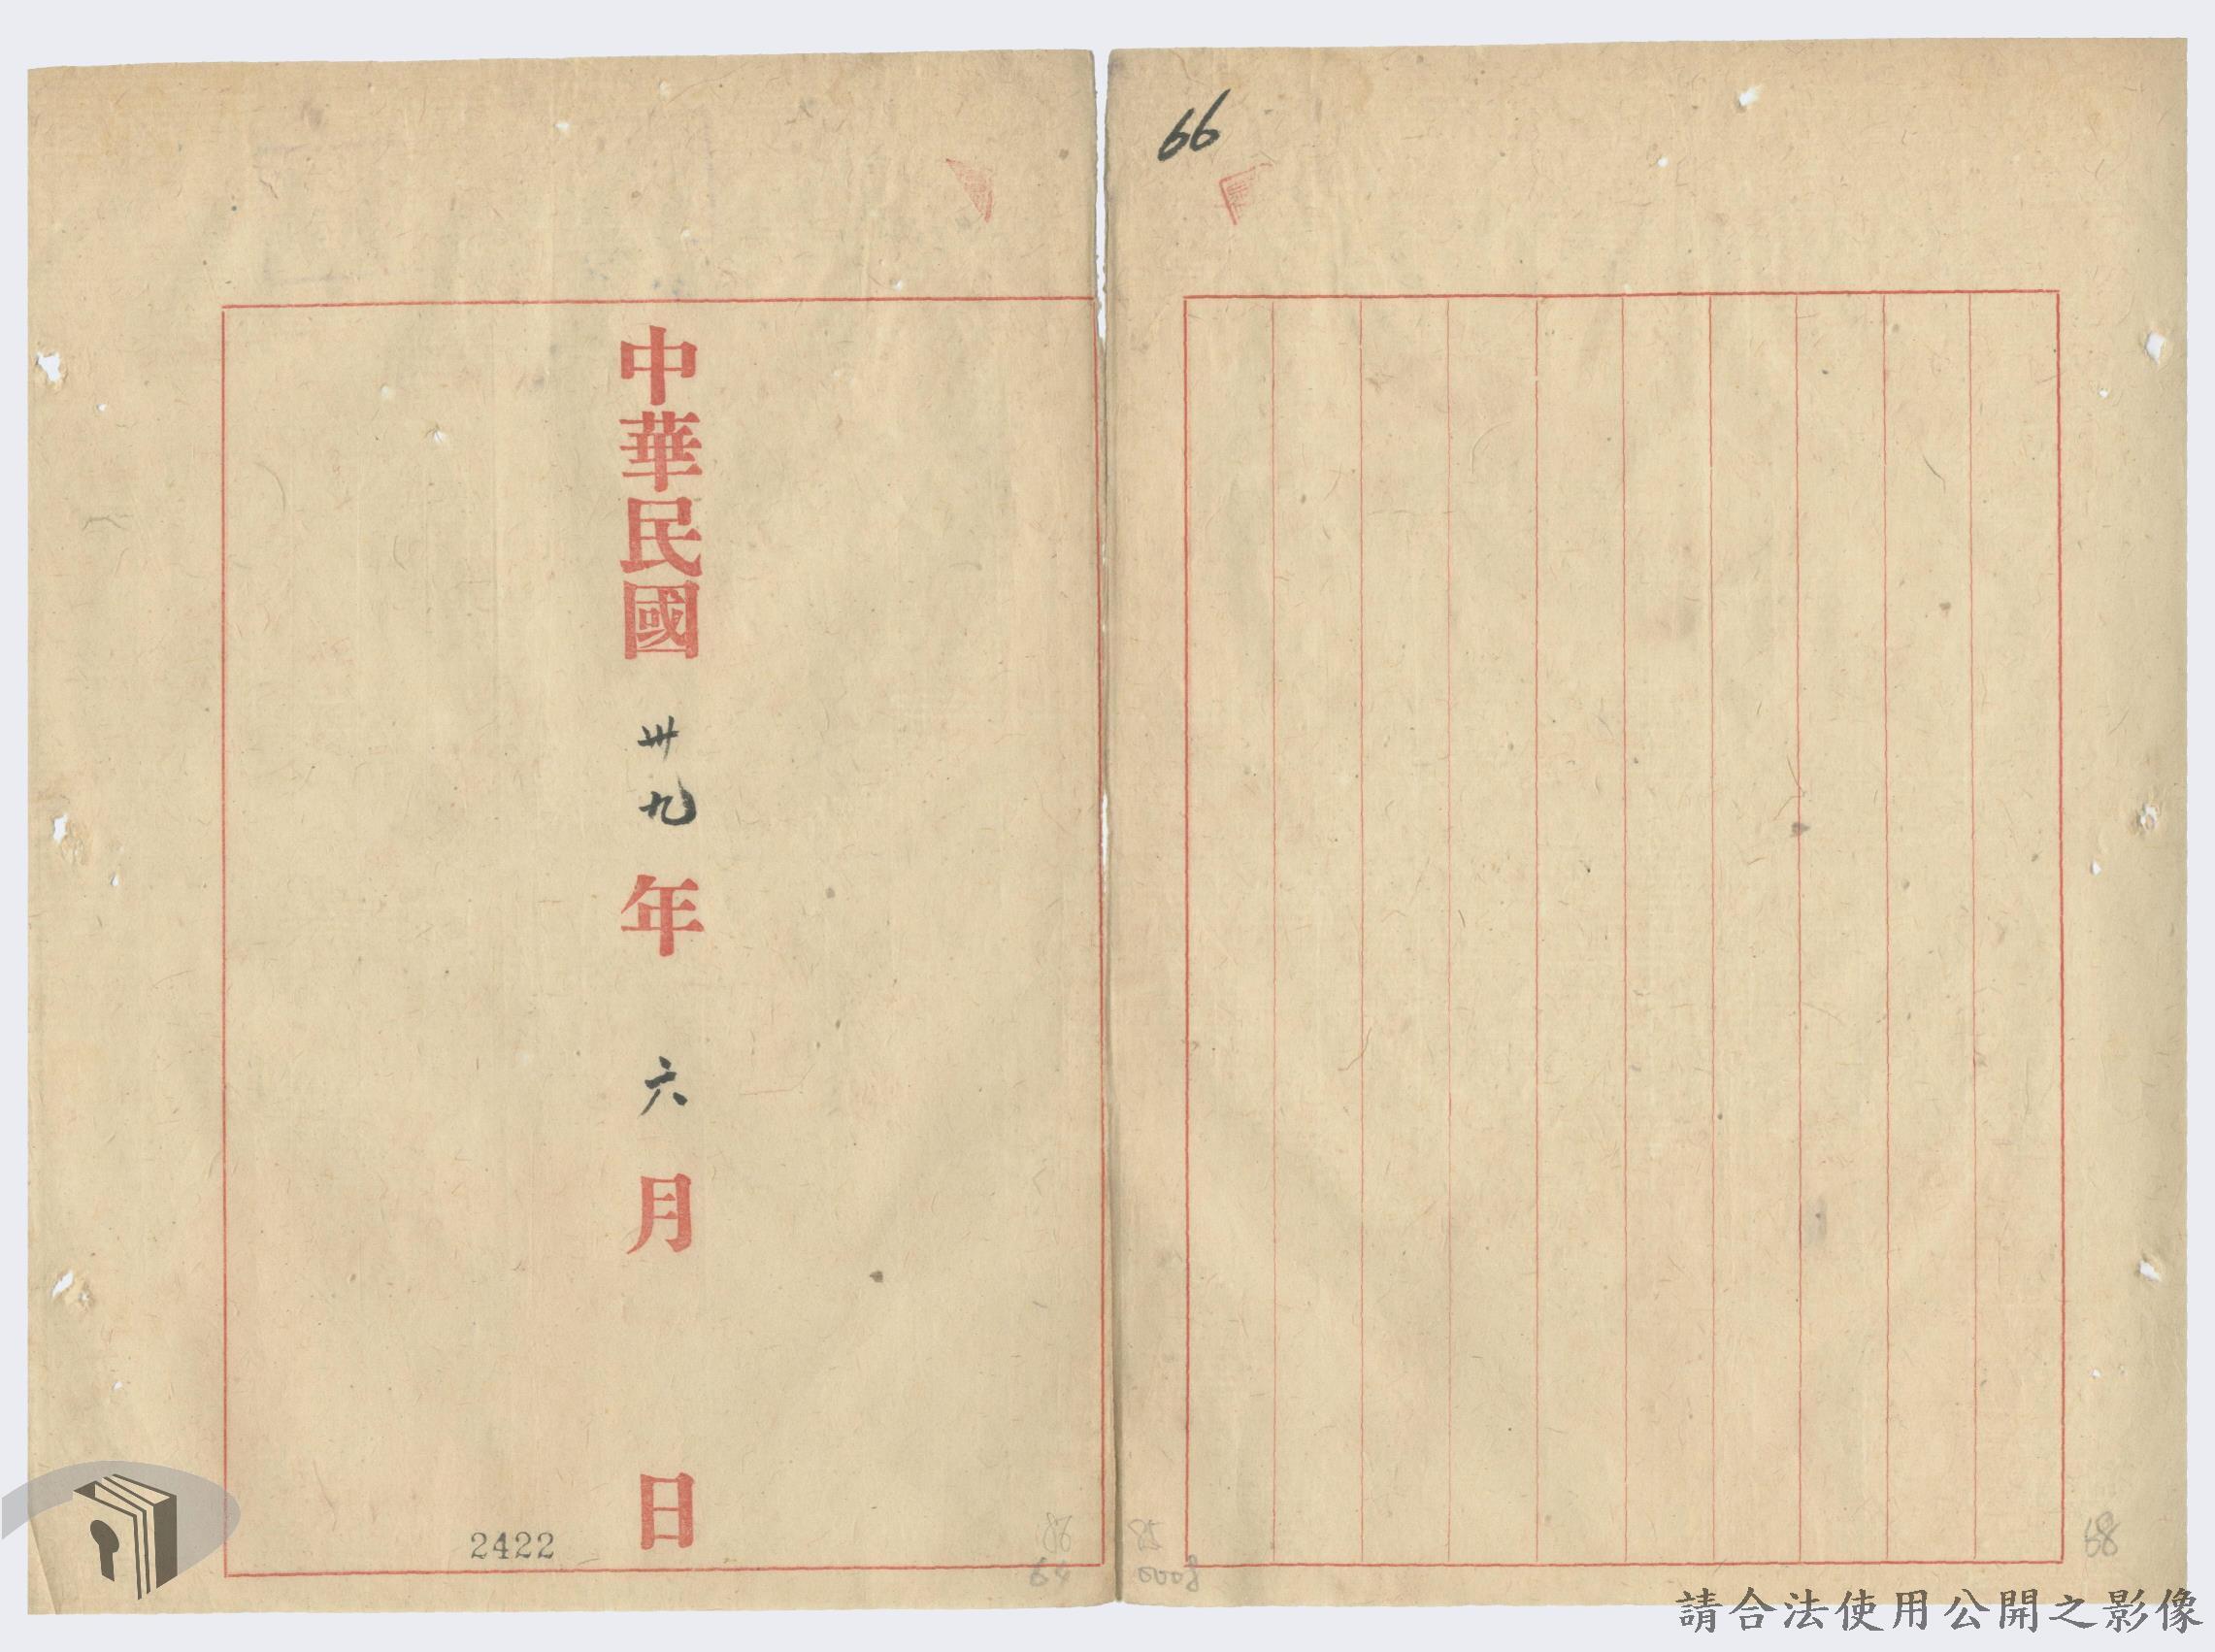 66
中華民國卅九年六月日
2422
86
64
85
0008
68
請合法使用公開之影像